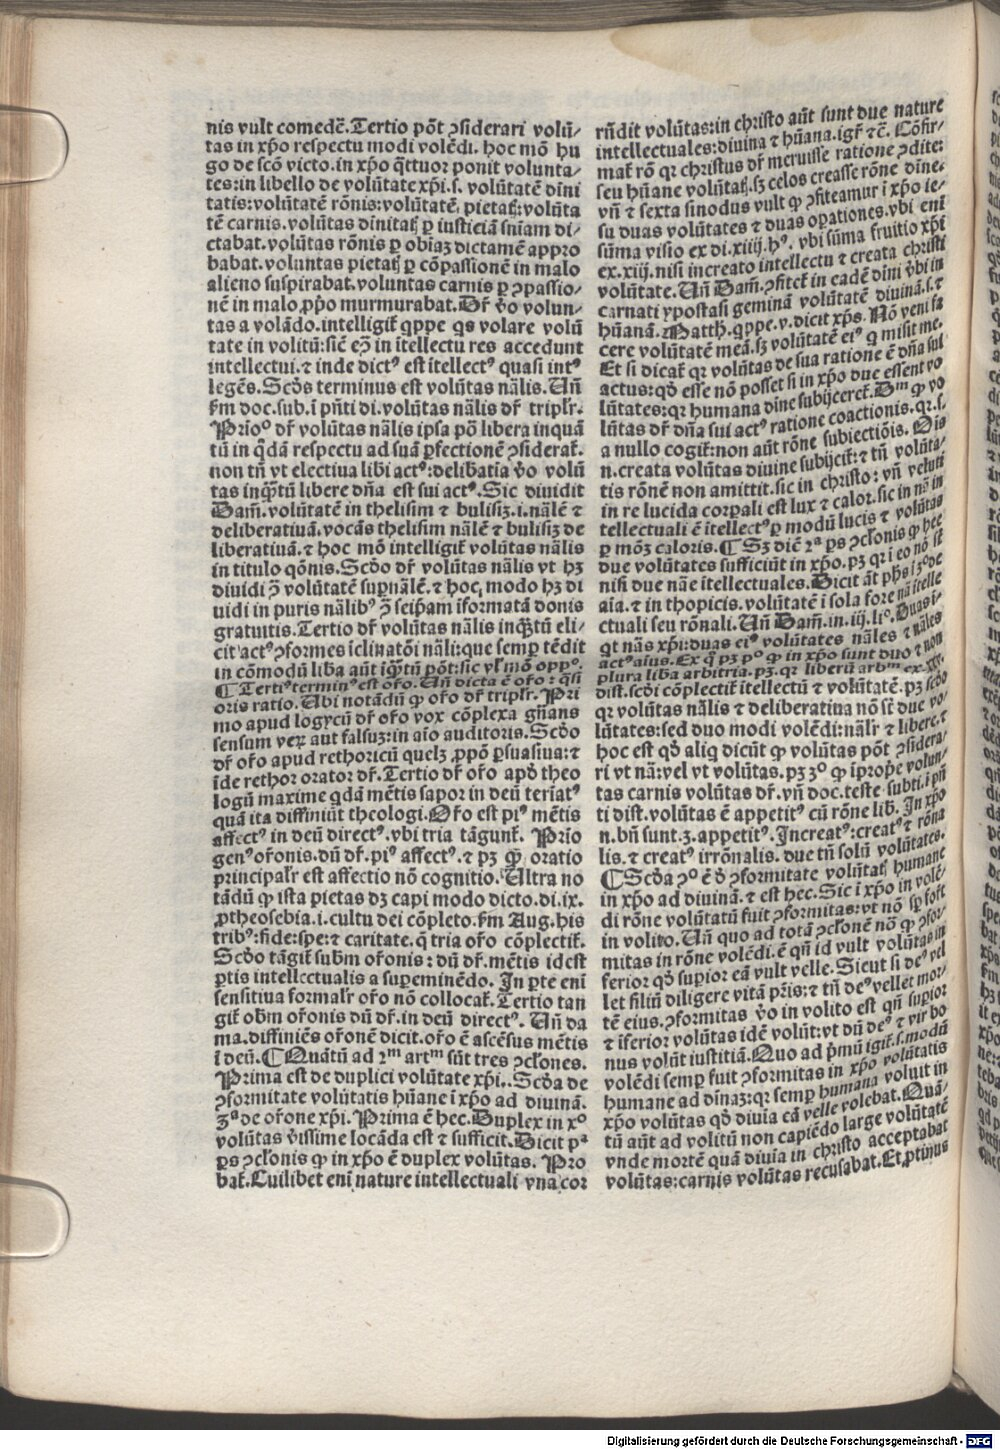 nis vult comedẽ. Tertio põt ꝯsiderari volũ/
tas in xp̃o respectu modi volẽdi. hoc mõ hu
go de scõ victo. in xp̃o q̃ttuor ponit volunta-
tes: in libello de volũtate xp̃i. s. volũtatẽ dini
tatis: volũtatẽ rõnis: voluntatẽ pietatꝭ: volũta
tẽ carnis. volũtas dinitatꝭ ꝑ iusticiã sñiam di/
ctabat. voluntas rõnis ꝑ obiaꝫ dictamẽ appro
babat. voluntas pietatꝭ ꝑ cõpassionẽ in malo
alieno suspirabat. voluntas carnis ꝑ ꝯpassio/
nẽ in malo ꝓp̃o murmurabat. Dr̃ ṽo volun/
tas a volãdo. intelligit̃ qppe qs volare volũ
tate in volitũ: siẽ eꝫ̃ in ĩtellectu res accedunt
intellectui. ⁊ inde dictꝰ est ĩtellectꝰ quasi intꝰ
legẽs. Scd̃s terminus est volũtas nãlis. Uñ
ẜm doc. sub. ĩ pñti di. volũtas nãlis dr̃ triplr̃.
Prĩoº dr̃ voluntas nãlis ipsa põ libera inquã
tũ in q̃dã respectu ad suã ꝑfectionẽ ꝯsiderat̃.
non tñ vt electiua libi actꝰ: delib̃atia ṽo volũ
tas inq̃tũ libere dña est sui actꝰ. Sic diuidit
Dam̃. volũtatẽ in thelisim ⁊ bulisiꝫ. i. nãlẽ ⁊
deliberatiuã. vocãs thelisim nãlẽ ⁊ bulisiꝫ de
liberatiuã. ⁊ hoc mõ intelligit̃ volũtas nãlis
in titulo qõnis. Scd̃o dr̃ voluntas nãlis vt hꝫ
diuidi ꝯ̃ volũtatẽ supnãlẽ. ⁊ hoc modo hꝫ di
uidi in puris nãlibꝰ ꝯ̃ seip̃am ĩformatã donis
gratuitis. Tertio dr̃ volũtas nãlis inq̃tũ eli/
cit actꝰ ꝯformes ĩclinatõi nãli: que semp tẽdit
in cõmodũ liba aũt iq̃tũ põt: sic vl̃ mõ oppº.
¶ Tertiꝰ terminꝰ est or̃o. Uñ dicta ẽ or̃o: q̃si
oris ratio. Ubi notãdũ ꝙ or̃o dr̃ triplr̃. Pri
mo apud logycũ dr̃ or̃o vox cõplexa gñans
sensum veꝝ aut falsuꝫ: in aĩo auditoris. Scd̃o
dr̃ or̃o apud rethoricũ quelꝫ ꝓpõ ꝑsuasiua: ⁊
ĩde rethor orator dr̃. Tertio dr̃ or̃o apd̃ theo
logũ maxime qdã mẽtis sapor in deũ teriatꝰ
quã ita diffiniũt theologi. Or̃o est piꝰ mẽtis
affectꝰ in deũ directꝰ. vbi tria tãgunt̃. Prĩo
genꝰ or̃onis. dũ dr̃. piꝰ affectꝰ. ⁊ pꝫ q̃ oratio
principalr̃ est affectio nõ cognitio. Ultra no
tãdũ ꝙ ista pietas dꝫ capi modo dicto. di. ix.
ꝓtheosebia. i. cultu dei cõpleto. ẜm Aug. his
tribꝰ: fide: spe: ⁊ caritate. q̃ tria or̃o cõplectit̃.
Scd̃o tãgit̃ subm̃ or̃onis: dũ dr̃. mẽtis id est
ꝑtis intellectualis a supeminẽdo. In ꝑte enĩ
sensitiua formalr̃ or̃o nõ collocat̃. Tertio tan
git̃ obm̃ or̃onis dũ dr̃. in deũ directꝰ. Uñ da
ma. diffiniẽs or̃onẽ dicit. or̃o ẽ ascẽsus mẽtis
ĩ deũ. ¶ Quãtũ ad 2ᵐ artᵐ sũt tres ꝯcl̃ones.
Prima est de duplici volũtate xp̃i. Scd̃a de
ꝯformitate volũtatis hũane ĩ xp̃o ad diuinã.
3ª de or̃one xp̃i. Prima ẽ hec. Duplex in xº
volũtas ṽissime locãda est ⁊ sufficit. Dicit pª
ꝑs ꝯcl̃onis ꝙ in xp̃o ẽ duplex volũtas. Pro
bat̃. Cuilibet enĩ nature intellectuali vna cor
rñdit volũtas: in christo aũt sunt due nature
intellectuales: diuina ⁊ hũana. igr̃ ⁊c̃. Cõfir-
mat̃ rõ qr christus dr̃ meruisse ratione ꝯdite:
seu hũane volũtatꝭ. sꝫ celos creasse rõne dine:
vñ ⁊ sexta sinodus vult ꝙ ꝯfiteamur ĩ xp̃o ie-
su duas volũtates ⁊ duas oꝑationes. vbi enĩ
sũma visio ex di. xiiij. hꝰ. vbi sũma fruitio xp̃i
ex. xiij. nisi increato intellectu ⁊ creata christi
volũtate. Uñ Dam̃. ꝯfitet̃ in eadẽ dini ṽbi in
carnati ypostasi geminã volũtatẽ diuinã. s. ⁊
hũanã. Matth. qppe. v. dicit xp̃s. Nõ veni fa
cere volũtatẽ meã. sꝫ volũtatẽ eiꝰ q misit me.
Et si dicat̃ qr volũtas de sua ratione ẽ dña sui
actus: qd̃ esse nõ posset si in xp̃o due essent vo
lũtates: qr humana dine subijceret̃. Dᵐ ꝙ vo
lũtas dr̃ dña sui actꝰ ratione coactionis. qr. s.
a nullo cogit̃: non aũt rõne subiectiõis. Ois
n. creata volũtas diuine subijcit̃: ⁊ tñ volũta/
tis rõnẽ non amittit. sic in christo: vñ veluti
in re lucida corꝑali est lux ⁊ calor. sic in nã in
tellectuali ẽ ĩtellectꝰ ꝑ modũ lucis ⁊ volũtas
ꝑ mõꝫ caloris. ¶ Sꝫ diẽ 2ª ꝑs ꝯcl̃onis ꝙ hec
due volũtates sufficiũt in xp̃o. pꝫ qr ĩ eo nõ st̃
nisi due nãe ĩtellectuales. Dicit ãt ph̃s ĩ 3º de
aĩa. ⁊ in thopicis. volũtatẽ ĩ sola fore nã ĩtelle
ctuali seu rõnali. Uñ Dam̃. in. iij. liº. Duas ĩ-
qt nãs xp̃i: duas eiꝰ volũtates nãles ⁊ nãles
actꝰ aĩus. Ex q̃ pꝫ pº ꝙ in xp̃o sunt duo ⁊ non
plura liba arbitria. pꝫ. qr liberũ arbᵐ ex. xxv.
dist. scd̃i cõplectit̃ ĩtellectũ ⁊ volũtatẽ. pꝫ scd̃o
qr volũtas nãlis ⁊ deliberatiua nõ st̃ due vo/
lũtates: sed duo modi volẽdi: nãlr̃ ⁊ libere. ⁊
hoc est qd̃ aliq dicũt ꝙ volũtas põt ꝯsidera/
ri vt nã: vel vt volũtas. pꝫ 3º ꝙ ĩprop̃e volun/
tas carnis volũtas dr̃. vñ doc. teste subti. ĩ pñ
ti dist. voluntas ẽ appetitꝰ cũ rõne lib̃. In xp̃o
n. bñ sunt. 3. appetitꝰ. Increatꝰ: creatꝰ ⁊ rõna
lis. ⁊ creatꝰ irrõnalis. due tñ solũ volũtates.
¶ Scd̃a ꝯº ẽ d̃ ꝯformitate volũtatꝭ humane
in xp̃o ad diuinã. ⁊ est hec. Sic ĩ xp̃o in volẽ/
di rõne volũtatũ fuit ꝯformitas: vt nõ sp̃ foit
in volito. Uñ quo ad totã ꝯcl̃onẽ nõ ꝙ ꝯfor/
mitas in rõne volẽdi. ẽ qñ id vult volũtas in
ferior qd̃ supior eã vult velle. Sicut si deꝰ vel
let filiũ diligere vitã pr̃is: ⁊ tñ deꝰ vellet mor/
tẽ eius. ꝯformitas ṽo in volito est qñ supior
⁊ ĩferior volũtas idẽ volũt: vt dũ deꝰ ⁊ vir bo
nus volũt iustitiã. Quo ad p̃mũ igit̃. s. modũ
volẽdi semp fuit ꝯformitas in xp̃o volũtatis
humane ad dinaꝫ: qr semp humana voluit in
xp̃o volũtas qd̃ diuia eã velle volebat. Quã/
tũ aũt ad volitũ non capiẽdo large volũtatẽ
vnde mortẽ quã diuia in christo acceptabat
volũtas: carnis volũtas recusabat. Et ꝓtinus
Digitalisierung gefördert durch die Deutsche Forschungsgemeinschaft - DFG